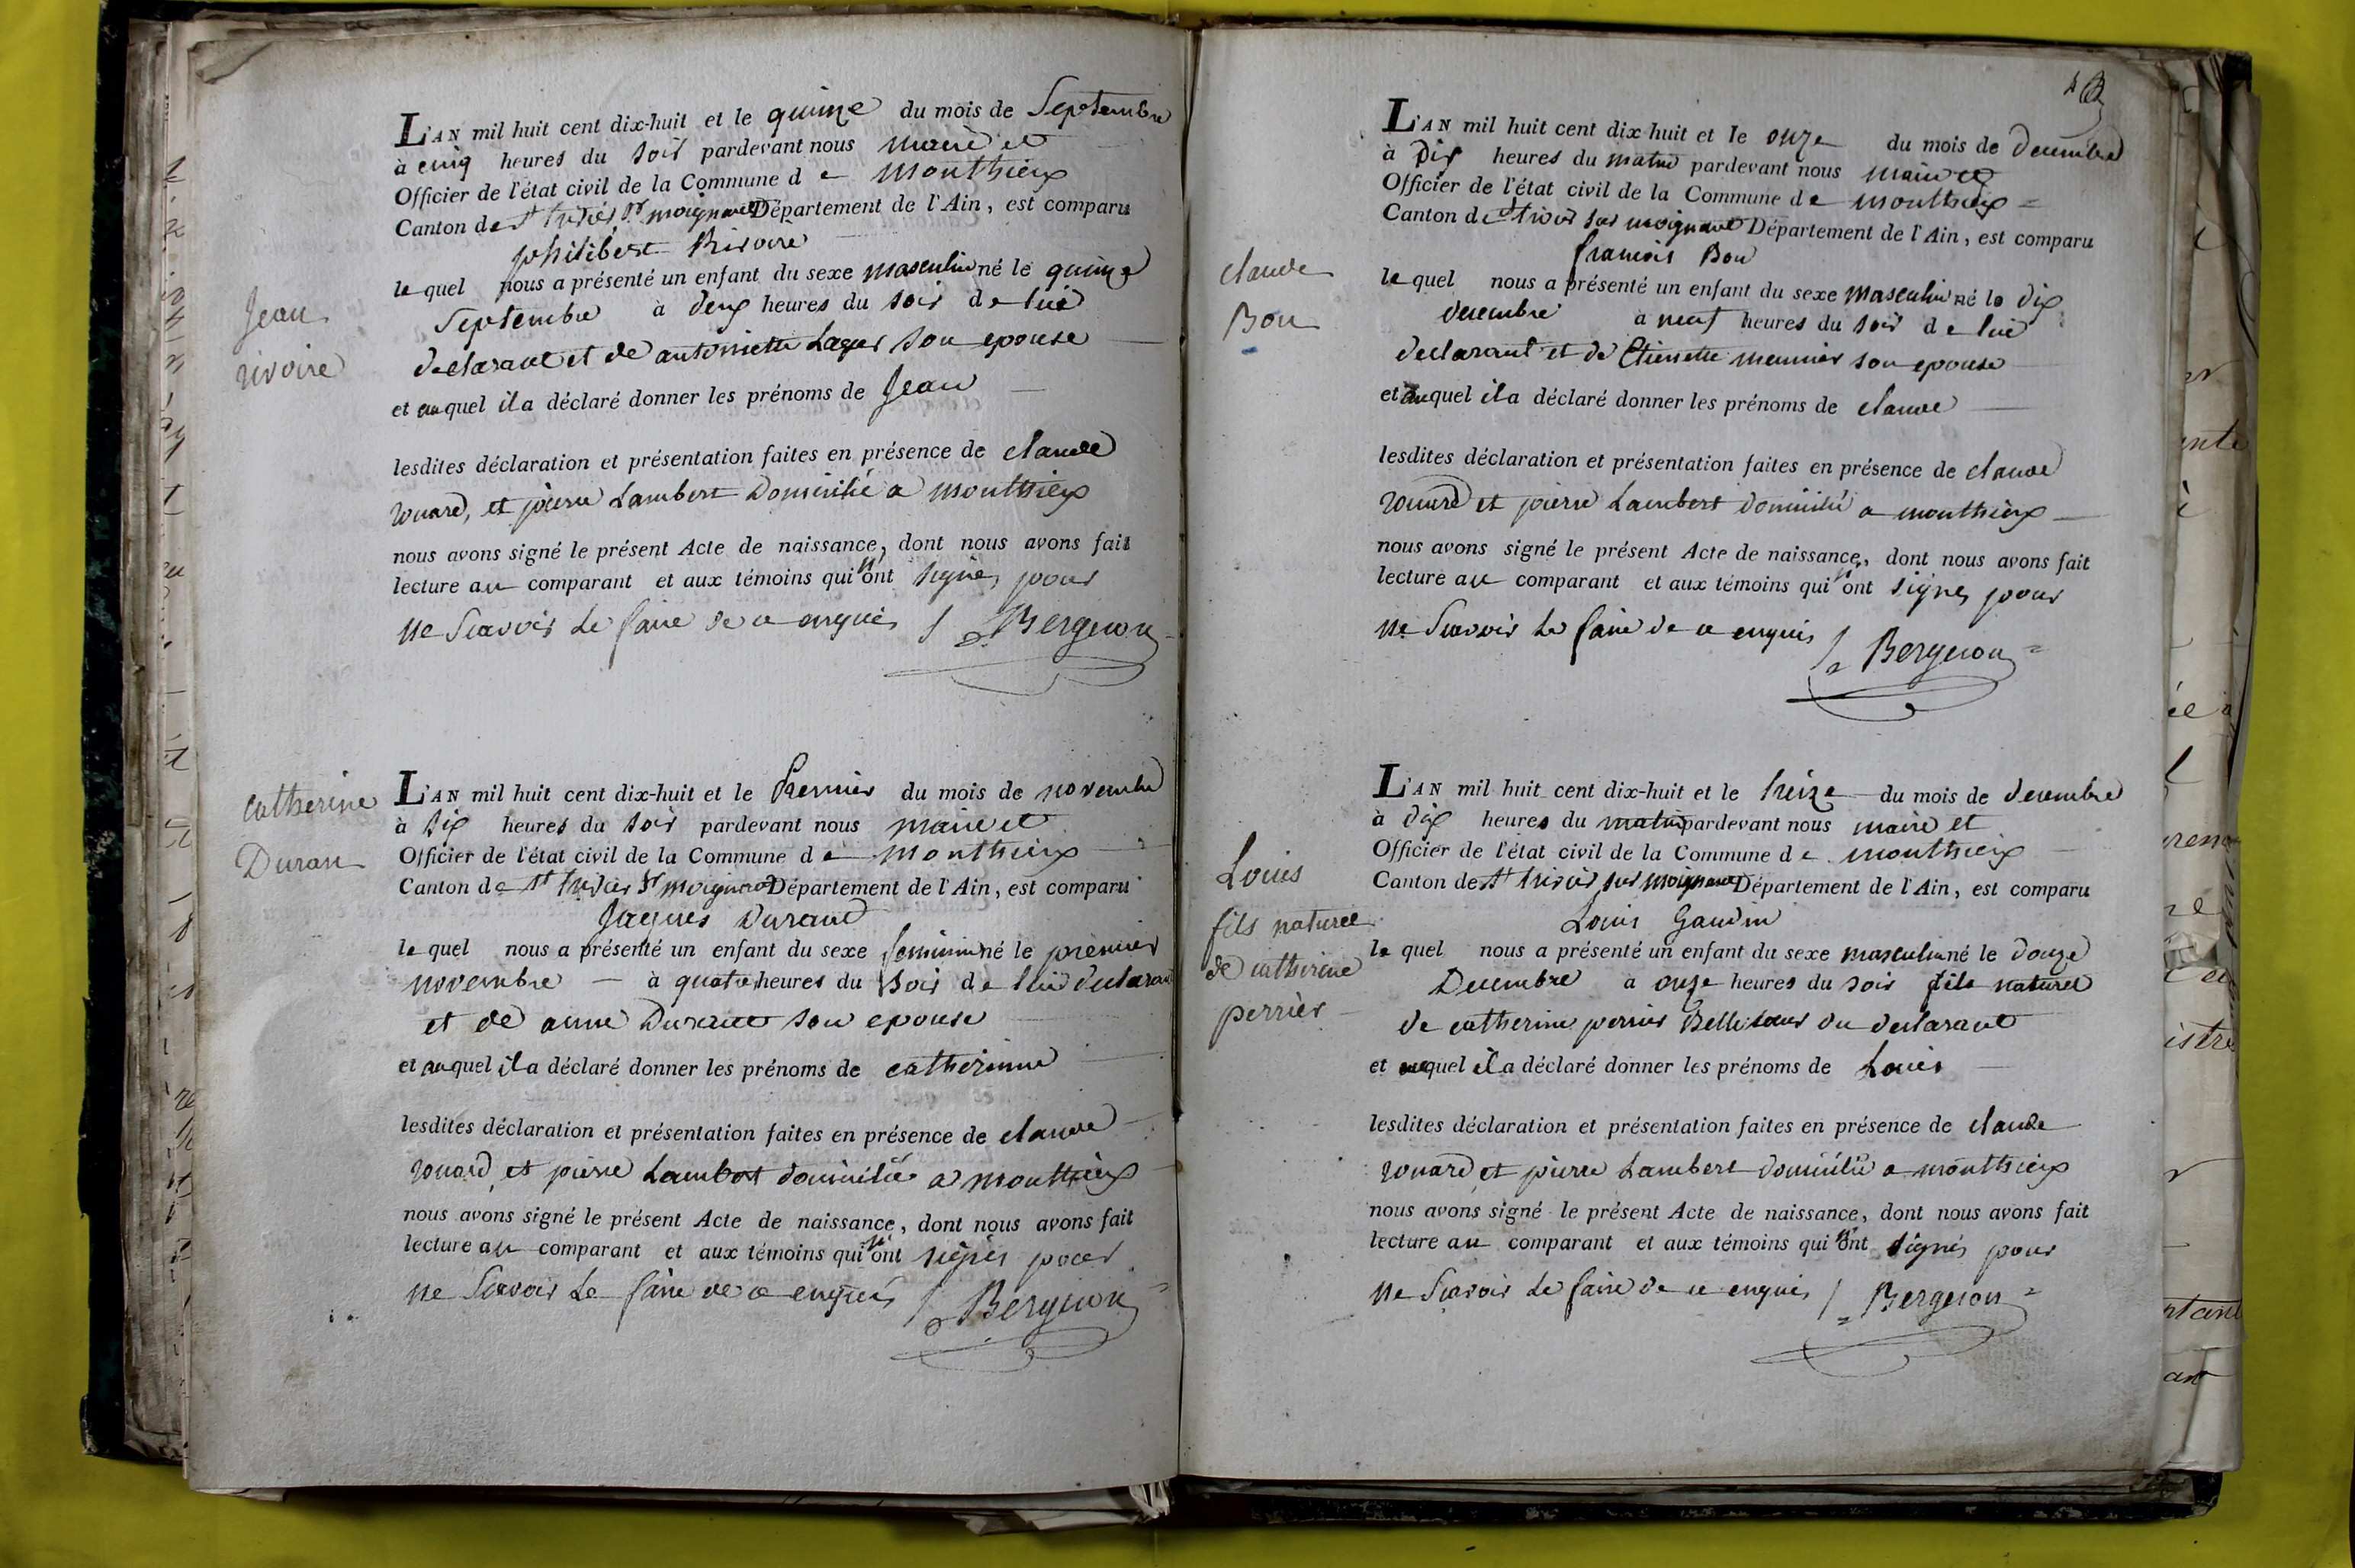 L'AN mil huit cent dix-huit et le quinze du mois de Septembre
à cinq heures du soir pardevant nous maire et
Officier de l'état civil de la Commune de Monthieux
Canton de St trivier Sr moignans Département de l'Ain, est comparu
philibert Rivoire
lequel nous a présenté un enfant du sexe masculin né le quinze
Septembre à deux heures du soir de lui
declarant et de antoinette Lager son epouse
et auquel il a déclaré donner les prénoms de Jean
Jean
rivoire
lesdites déclaration et présentation faites en présence de claude
rouard, et pierre Lambert Domicilié a monthieux
nous avons signé le présent Acte de naissance, dont nous avons fait
lecture au comparant et aux témoins qui n'ont signé, pour
ne Scavoir Le faire de ce enquis Bergeron
catherine
Duran
L'AN mil huit cent dix-huit et le Premier du mois de novembre
à six heures du soir pardevant nous maire et
Officier de l'état civil de la Commune de Monthieux
Canton de St trivier Sr moignans Département de l'Ain, est comparu
Jaques Durand
lequel nous a présenté un enfant du sexe feminin né le premier
novembre à quatre heures du soir de lui declarant
et de anne Durand son epouse
et auquel il a déclaré donner les prénoms de catherinne
lesdites déclaration et présentation faites en présence de claude
rouard, et pierre Lambert domicilié a monthieux
nous avons signé le présent Acte de naissance, dont nous avons fait
lecture au comparant et aux témoins qui n'ont signés pour
ne Scavoir Le faire de ce enquis Bergeron
L'AN mil huit cent dix-huit et le onze du mois de Decembre
à Dix heures du matin pardevant nous maire et
Officier de l'état civil de la Commune de monthieux
Canton de St trivier sur moignans Département de l'Ain, est comparu
francois Bon
lequel nous a présenté un enfant du sexe masculin né le dix
decembre à neuf heures du soir de lui
declarant et de Etiennette meunier son epouse
et auquel il a déclaré donner les prénoms de claude
claude
Bon
lesdites déclaration et présentation faites en présence de claude
rouard et pierre Lambert domicilié a monthieux
nous avons signé le présent Acte de naissance, dont nous avons fait
lecture au comparant et aux témoins qui n'ont signés pour
ne Scavoir Le faire de ce enquis Bergeron
L'AN mil huit cent dix-huit et le treize du mois de decembre
à dix heures du matin pardevant nous maire et
Officier de l'état civil de la Commune de monthieux
Canton de St trivier sur moignans Département de l'Ain, est comparu
Louis Gaudin
lequel nous a présenté un enfant du sexe masculin né le douze
Decembre à onze heures du soir fils naturel
de catherine perrier Belle soeur du declarant
et auquel il a déclaré donner les prénoms de Louis
Louis
fils naturel
de catherine
perrier
lesdites déclaration et présentation faites en présence de claude
rouard et pierre Lambert domicilié a monthieux
nous avons signé le présent Acte de naissance, dont nous avons fait
lecture au comparant et aux témoins qui n'ont signés pour
ne Scavoir Le faire de ce enquis Bergeron